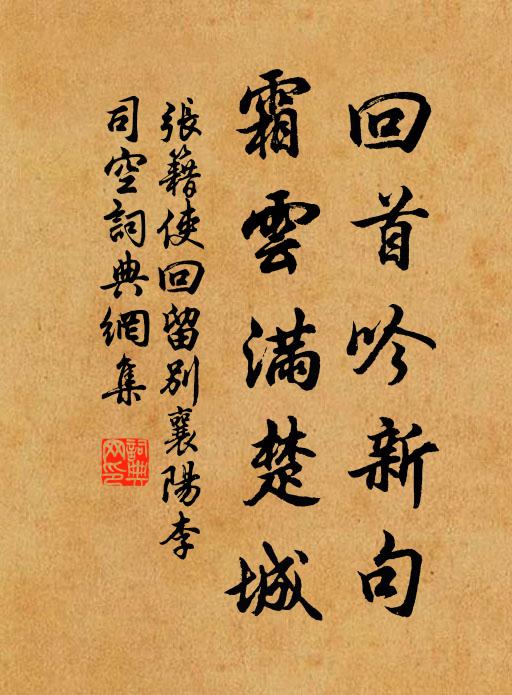 回首吟新句
霜雲滿楚城
張籍使回留別襄陽李
司空詞典網集
詞典
网印